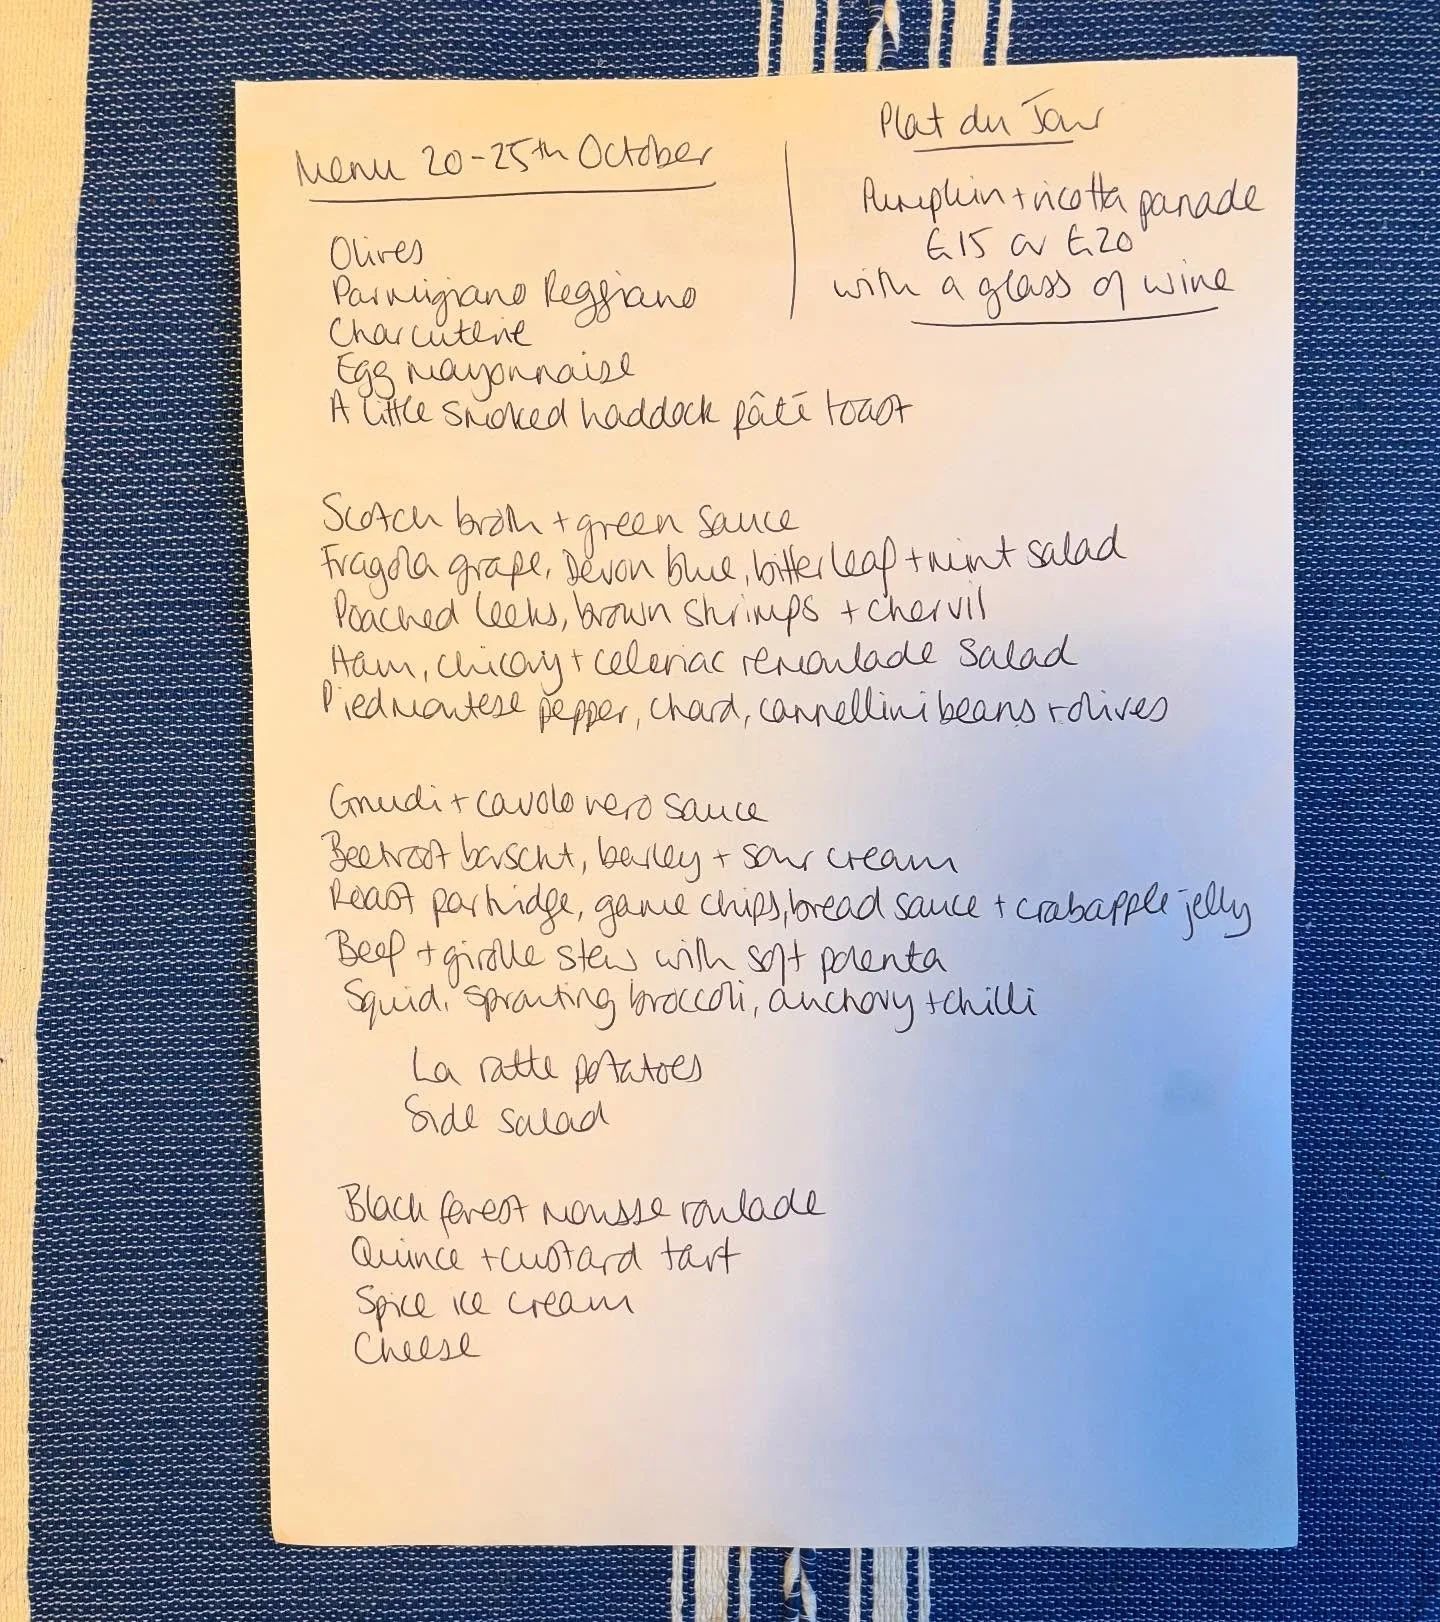 Menu 20-25th October
Olives
Parmigiano Reggiano
Charcuterie
Egg mayonnaise
A little smoked haddock pâté toast
Plat du Jour
Pumpkin + ricotta panade
£15 or £20
with a glass of wine
Scotch broth + green sauce
Fragola grape, Devon blue, bitter leaf + mint salad
Poached leeks, brown shrimps + chervil
Ham, chicory + celeriac remoulade salad
Piedmontese pepper, chard, cannellini beans + olives
Gnudi + cavolo nero sauce
Beetroot borscht, barley + sour cream
Roast partridge, game chips, bread sauce + crabapple jelly
Beef + girolle stew with soft polenta
Squid, sprouting broccoli, anchovy + chilli
La ratte potatoes
Side salad
Black forest mousse roulade
Quince + custard tart
Spice ice cream
Cheese